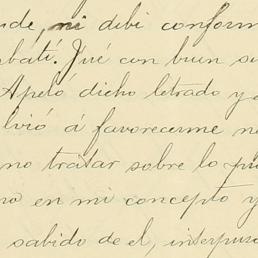 ni debí conform
batí. Fué con buen su
Apeló dicho letrado y
lvió á favorecerme
no tratar sobre lo
en mi concepto y
sabido de el, interpus